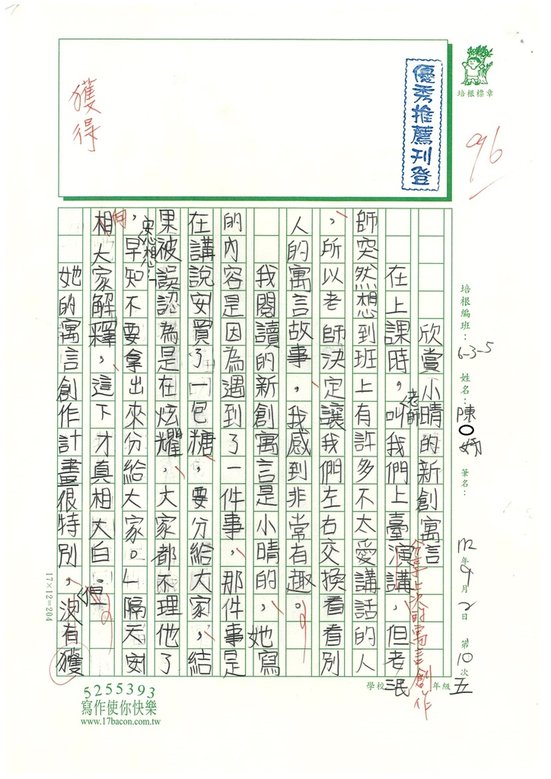 優秀推薦刊登
培根標章
96
獲得
培根編班：6-3-5
姓名：陳○妍
筆名：
112年9月2日
第10次
學校
五年級
欣賞小晴的新創寓言
在上課時，老師叫我們上臺演講，但老
分享上次的寓言創作
師突然想到班上有許多不太愛講話的人
，所以老師決定讓我們左右交換看看別
人的寓言故事，我感到非常有趣。
我閱讀的新創寓言是小晴的，她寫
的內容是因為遇到了一件事，那件事是
在講說安買了一包糖，要分給大家，結
果被誤認為是在炫耀，大家都不理他了
，早知不要拿出來分給大家。隔天安
思想：
向
相大家解釋，這下才真相大白。
她的寓言創作計畫很特別，但沒有獲
17×12=204
5255393
寫作使你快樂
www.17bacon.com.tw